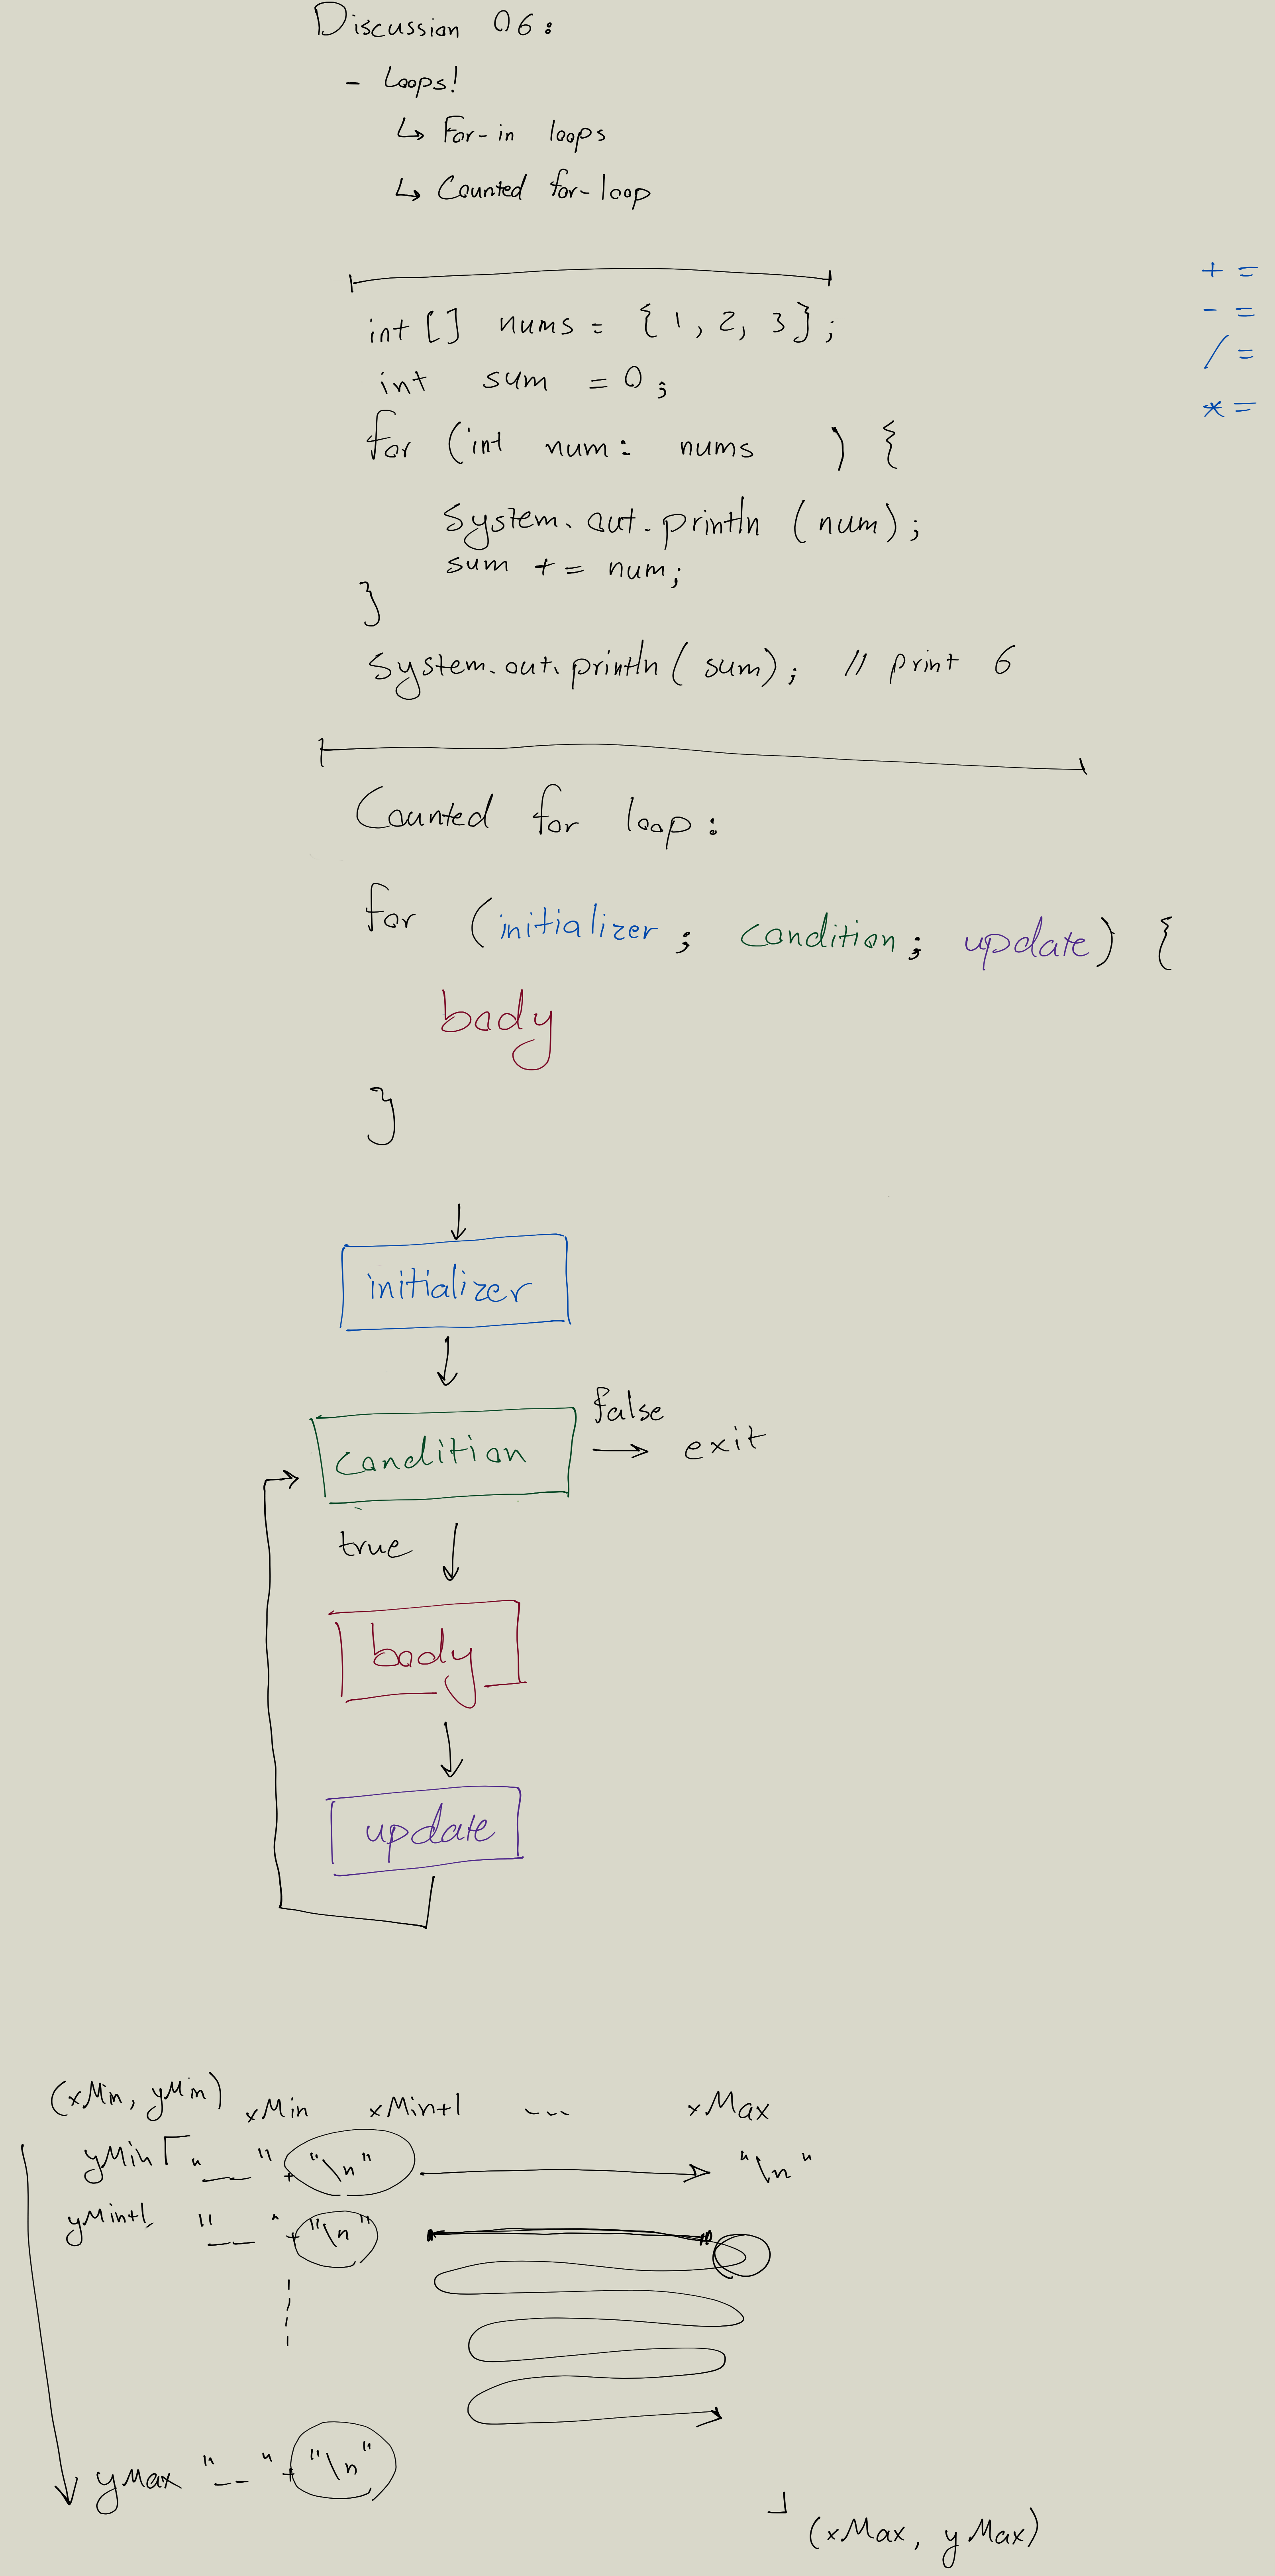 Discussion 06:
- Loops!
↳ For-in loops
↳ Counted for-loop
+ =
- =
/ =
* =
int [] nums = {1, 2, 3};
int sum = 0;
for (int num: nums ) {
System.out.println (num);
sum += num;
}
System.out.println( sum); // print 6
Counted for loop:
for (initializer; condition; update) {
body
}
initializer
condition
false
→ exit
true
body
update
(xMin, yMin) xMin xMin+1 --- xMax
yMin "__" + "\n" "\n"
yMin+1 "__" + "\n"
yMax "__" + "\n"
(xMax, yMax)